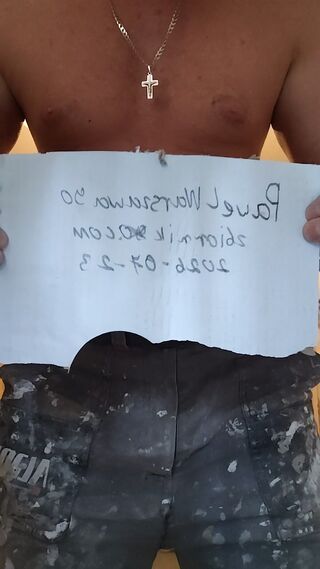 Pawel Warszawa 50
zbiornik .com
2026-07-23